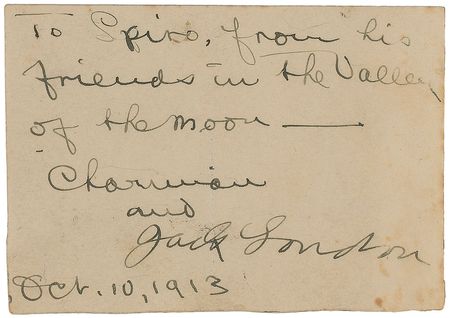 To Spiro, from his
friends in the Valley
of the moon —
Charmian
and
Jack London
Oct. 10, 1913